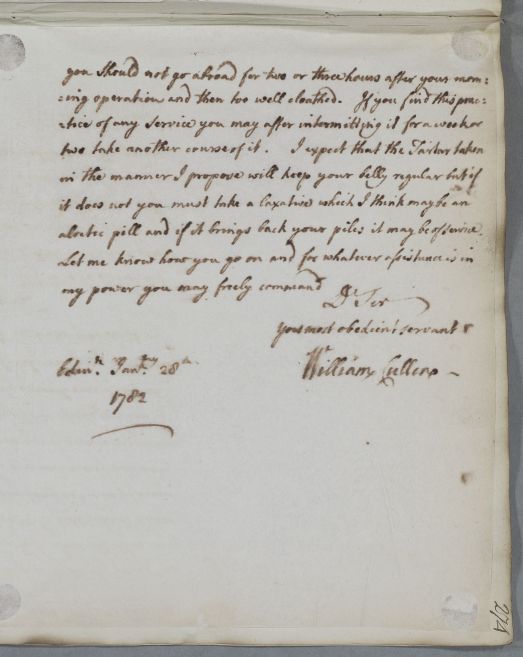 you should not go abroad for two or three hours after your morn:
:ing operation and then too well cloathed. If you find this prac:
:tice of any service you may after intermitting it for a week or
two take another course of it. I expect that the Tartar taken
in the manner I propose will keep your belly regular but if
it does not you must take a laxative which I think may be an
aloetic pill and if it brings back your piles it may be of service.
Let me know how you go on and for whatever assistance is in
my power you may freely command
Dr Sir
your most obedient servant
William Cullen
Edinr. Janry 28th
1782
274